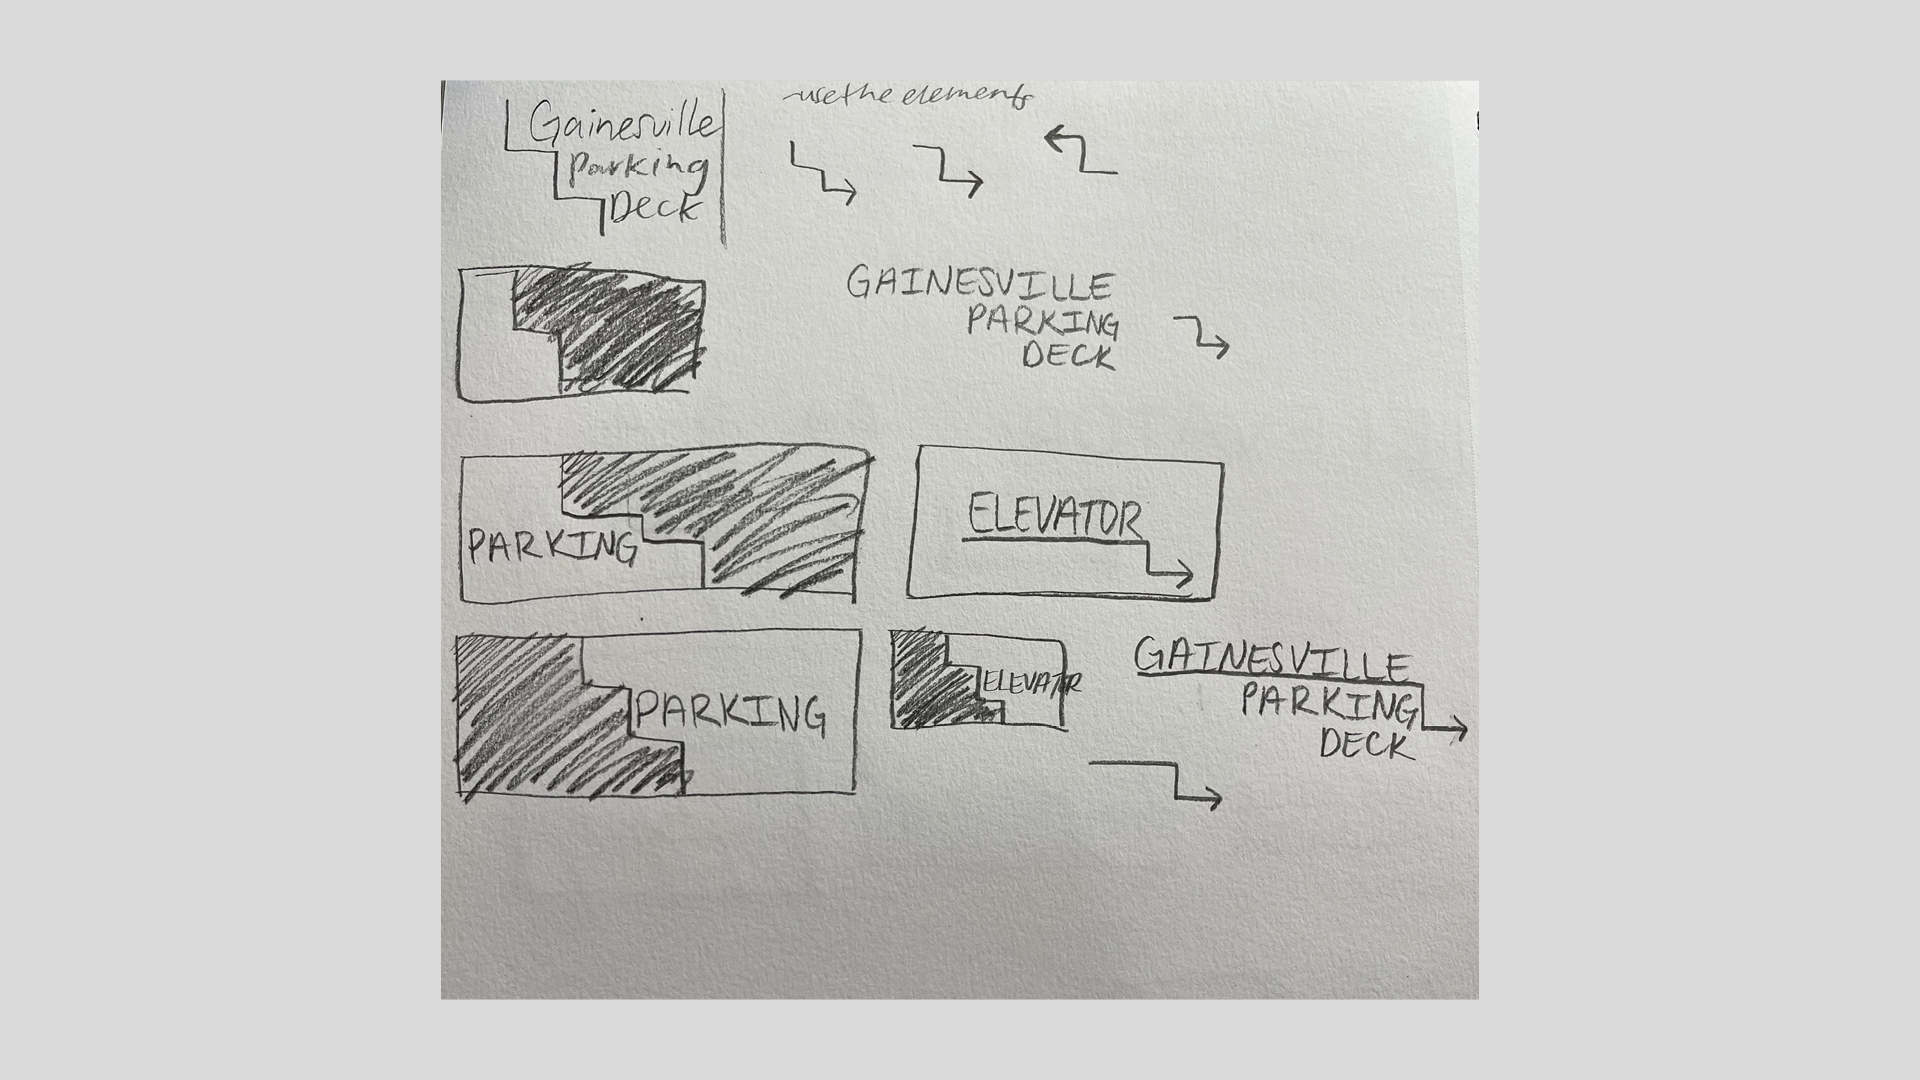 Gainesville
Parking
Deck
~use the elements
GAINESVILLE
PARKING
DECK
PARKING
ELEVATOR
PARKING
ELEVATR
GAINESVILLE
PARKING
DECK